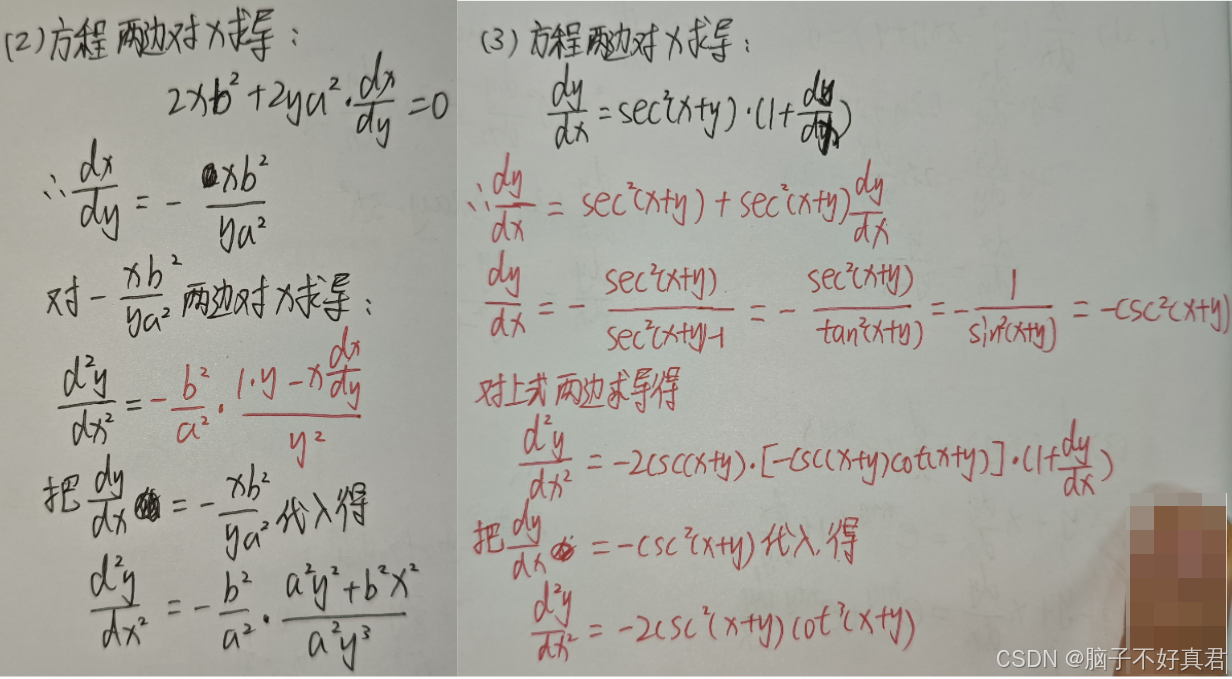 (2) 方程两边对x求导：
2xb²+2ya²·dx/dy=0
∴dx/dy=-xb²/ya²
对-xb²/ya²两边对x求导：
d²y/dx²=-b²/a²·(1·y-x dx/dy)/y²
把dy/dx=-xb²/ya²代入得
d²y/dx²=-b²/a²·(a²y²+b²x²)/a²y³
(3) 方程两边对x求导：
dy/dx=sec²(x+y)·(1+dy/dx)
∴dy/dx=sec²(x+y)+sec²(x+y)dy/dx
dy/dx=-sec²(x+y)/(sec²(x+y)-1)=-sec²(x+y)/tan²(x+y)=-1/sin²(x+y)=-csc²(x+y)
对上式两边求导得
d²y/dx²=-2csc(x+y)·[-csc(x+y)cot(x+y)]·(1+dy/dx)
把dy/dx=-csc²(x+y)代入得
d²y/dx²=-2csc²(x+y)cot³(x+y)
CSDN @脑子不好真君